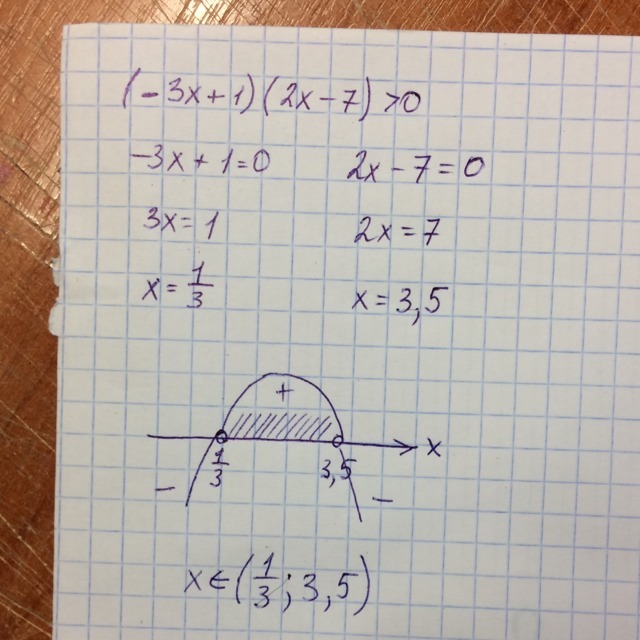 (-3x+1)(2x-7)>0
-3x+1=0 2x-7=0
3x=1 2x=7
x=1/3 x=3,5
+
x
1/3 3,5
- -
x∈(1/3;3,5)